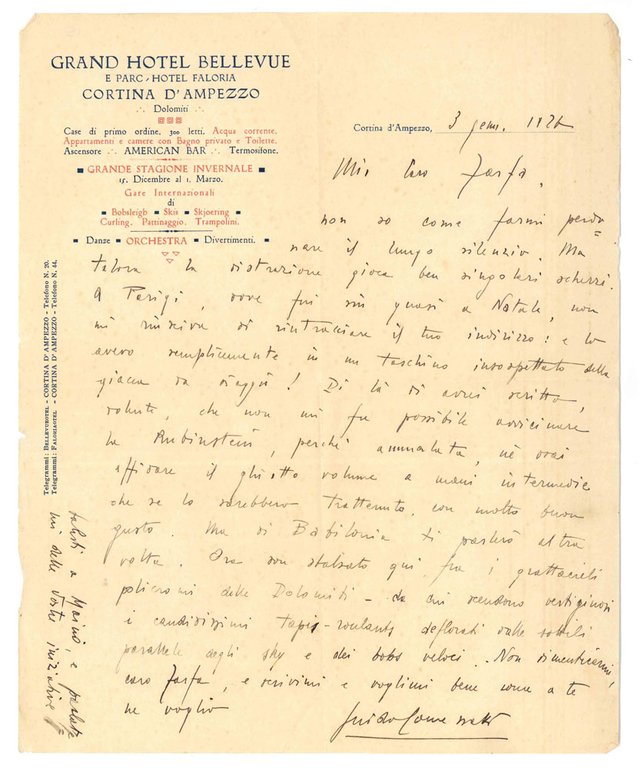 GRAND HOTEL BELLEVUE
E PARC-HOTEL FALORIA
CORTINA D'AMPEZZO
Dolomiti
Case di primo ordine. 300 letti. Acqua corrente.
Appartamenti e camere con Bagno privato e Toilette.
Ascensore AMERICAN BAR Termosifone.
GRANDE STAGIONE INVERNALE
15. Dicembre al 1. Marzo.
Gare Internazionali
di
Bobsleigh Skis Skjoering
Curling. Pattinaggio. Trampolini.
Danze ORCHESTRA Divertimenti.
Telegrammi: BELLEVUEHOTEL - CORTINA D'AMPEZZO - Telefono N. 20.
Telegrammi: FALORIAHOTEL - CORTINA D'AMPEZZO - Telefono N. 44.
Cortina d'Ampezzo, 3 genn.
Mio caro Farfa,
non so come farmi perdo=
nare il lungo silenzio. Ma
talora la distrazione gioca ben singolari scherzi.
A Parigi, dove fui sin quasi a Natale, non
mi riusciva di rintracciare il tuo indirizzo: e lo
avevo semplicemente in un taschino insospettato della
giacca da viaggio! Di là ti avrei scritto,
che non mi fu possibile avvicinare
la Rubinstein, perché ammalata, né osai
affidare il ghiotto volume a mani intermedie
che se lo sarebbero trattenuto, con molto buon
gusto. Ma di Babilonia ti parlerò altra
volta. Ora son sbalzato qui fra i grattacieli
policromi delle Dolomiti - da cui scendono vertiginosi
i candidissimi tapis-roulants deflorati dalle sottili
parallele degli sky e dei bobs veloci. Non dimenticarmi,
caro Farfa, e scrivimi e voglimi bene come a te
ne voglio
Saluti a Marino, e parlate
mi delle Vostre iniziative